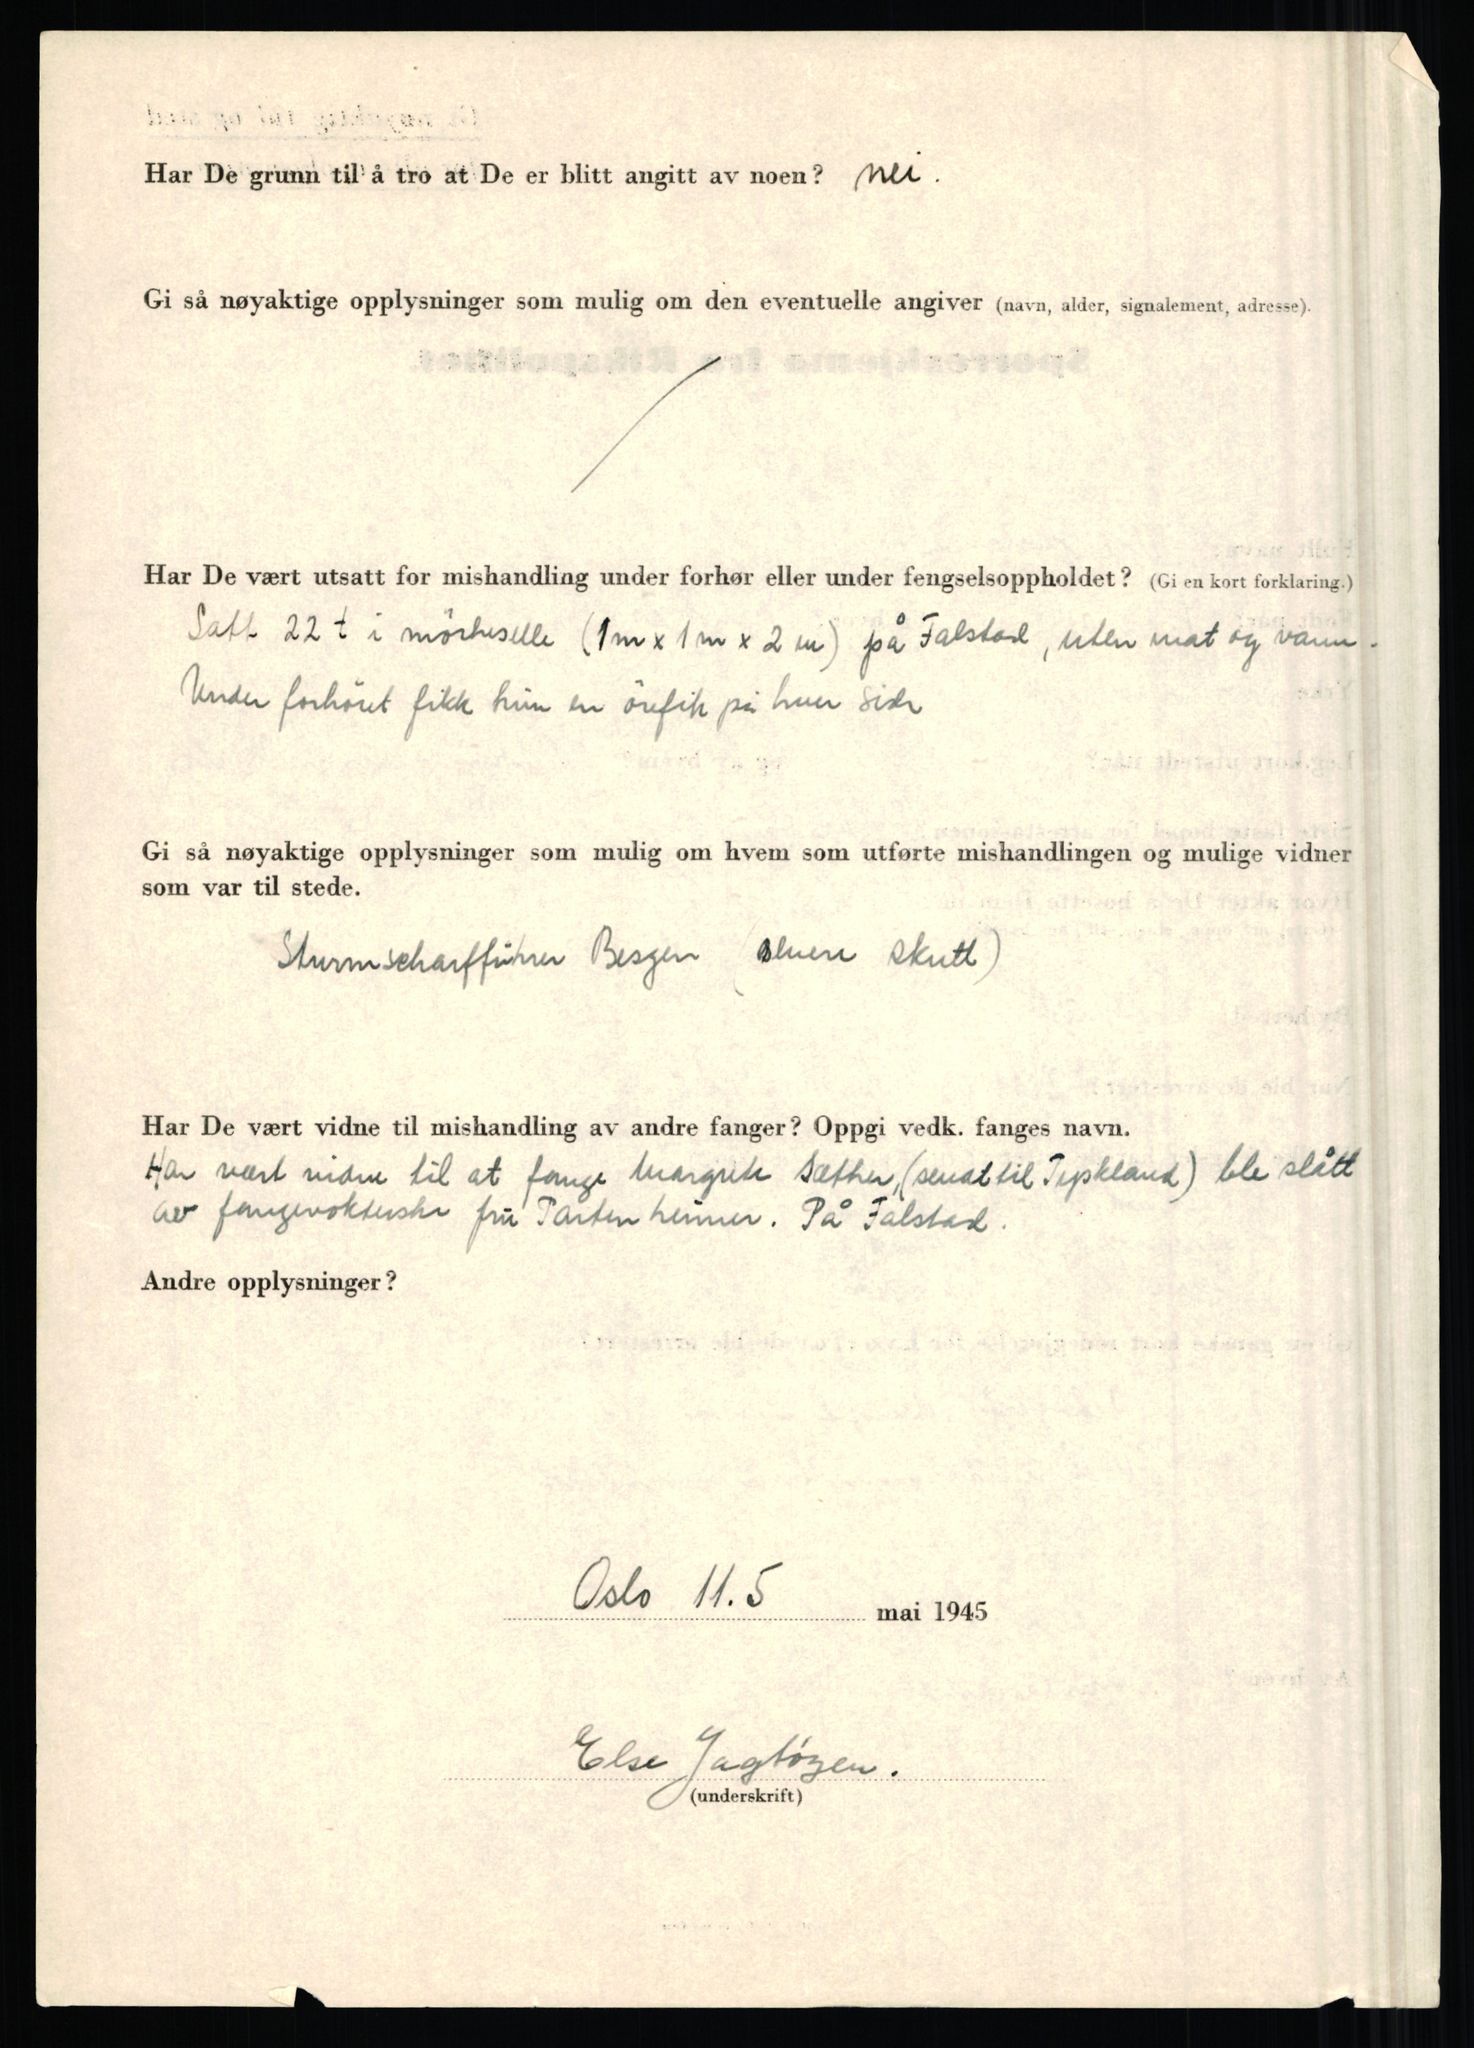 Har De grunn til å tro at De er blitt angitt av noen? nei.
Gi så nøyaktige opplysninger som mulig om den eventuelle angiver (navn, alder, signalement, adresse).
Har De vært utsatt for mishandling under forhør eller under fengselsoppholdet? (Gi en kort forklaring.)
Satt 22 t i mörkeselle (1m x 1m x 2m) på Falstad, uten mat og vann.
Under forhöret fikk hun en örefik på hver side
Gi så nøyaktige opplysninger som mulig om hvem som utførte mishandlingen og mulige vidner
som var til stede.
Sturmscharfführer Besgen (senere skutt)
Har De vært vidne til mishandling av andre fanger? Oppgi vedk. fanges navn.
Har vært vidne til at fange Margrete Sæther, (sendt til Tyskland) ble slått
av fangevokterske fru Partenheimer. På Falstad.
Andre opplysninger?
Oslo 11.5 mai 1945
Else Jagtøyen.
(underskrift)